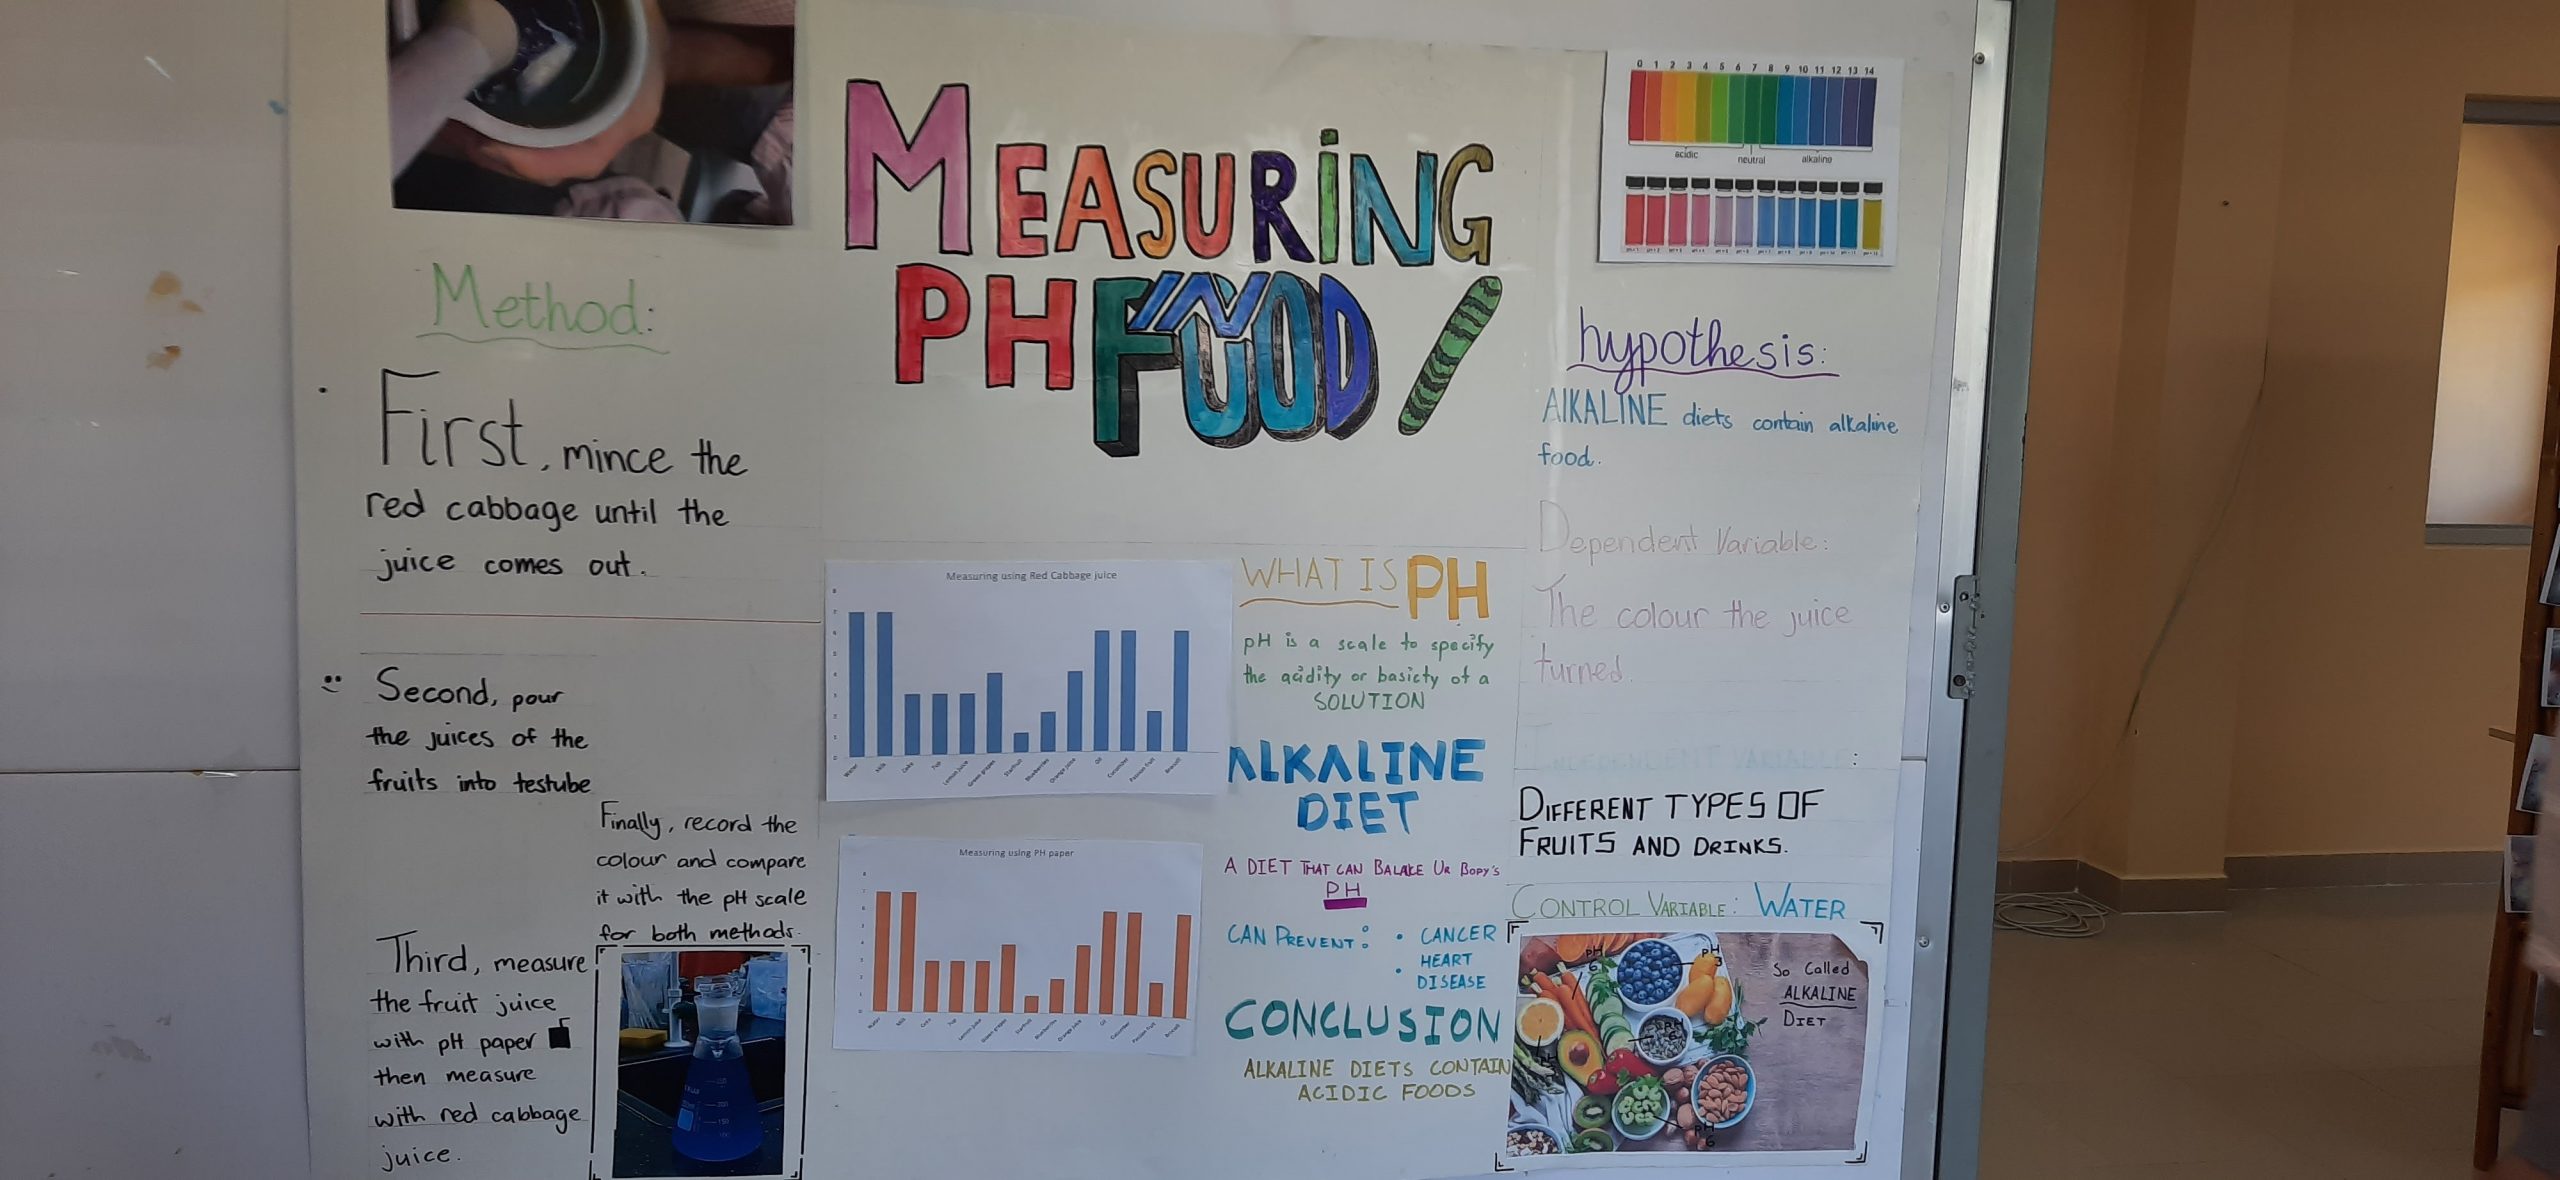 MEASURING
PH IN FOOD
Method:
First, mince the
red cabbage until the
juice comes out.
Second, pour
the juices of the
fruits into testube
Third, measure
the fruit juice
with pH paper
then measure
with red cabbage
juice.
Finally, record the
colour and compare
it with the pH scale
for both methods.
Measuring using Red Cabbage juice
8
7
6
5
4
3
2
1
0
Water
Milk
Coke
7up
Lemon juice
Green grapes
Starfruit
Blueberries
Orange juice
Oil
Cucumber
Passion fruit
Brocoli
Measuring using PH paper
8
7
6
5
4
3
2
1
0
Water
Milk
Coke
7up
Lemon juice
Green grapes
Starfruit
Blueberries
Orange juice
Oil
Cucumber
Passion fruit
Brocoli
WHAT IS PH
pH is a scale to specify
the acidity or basicty of a
SOLUTION
ALKALINE
DIET
A DIET THAT CAN BALAKE UR BOPY'S
PH
CAN PREVENT: • CANCER
• HEART
DISEASE
CONCLUSION
ALKALINE DIETS CONTAIN
ACIDIC FOODS
0 1 2 3 4 5 6 7 8 9 10 11 12 13 14
acidic neutral alkaline
hypothesis:
AlKALINE diets contain alkaline
food.
Dependent Variable:
The colour the juice
turned.
INDEPENDENT VARIABLE:
DIFFERENT TYPES OF
FRUITS AND DRINKS.
CONTROL VARIABLE: WATER
pH
6
pH
3
So Called
ALKALINE
DIET
pH
6
pH
pH
6